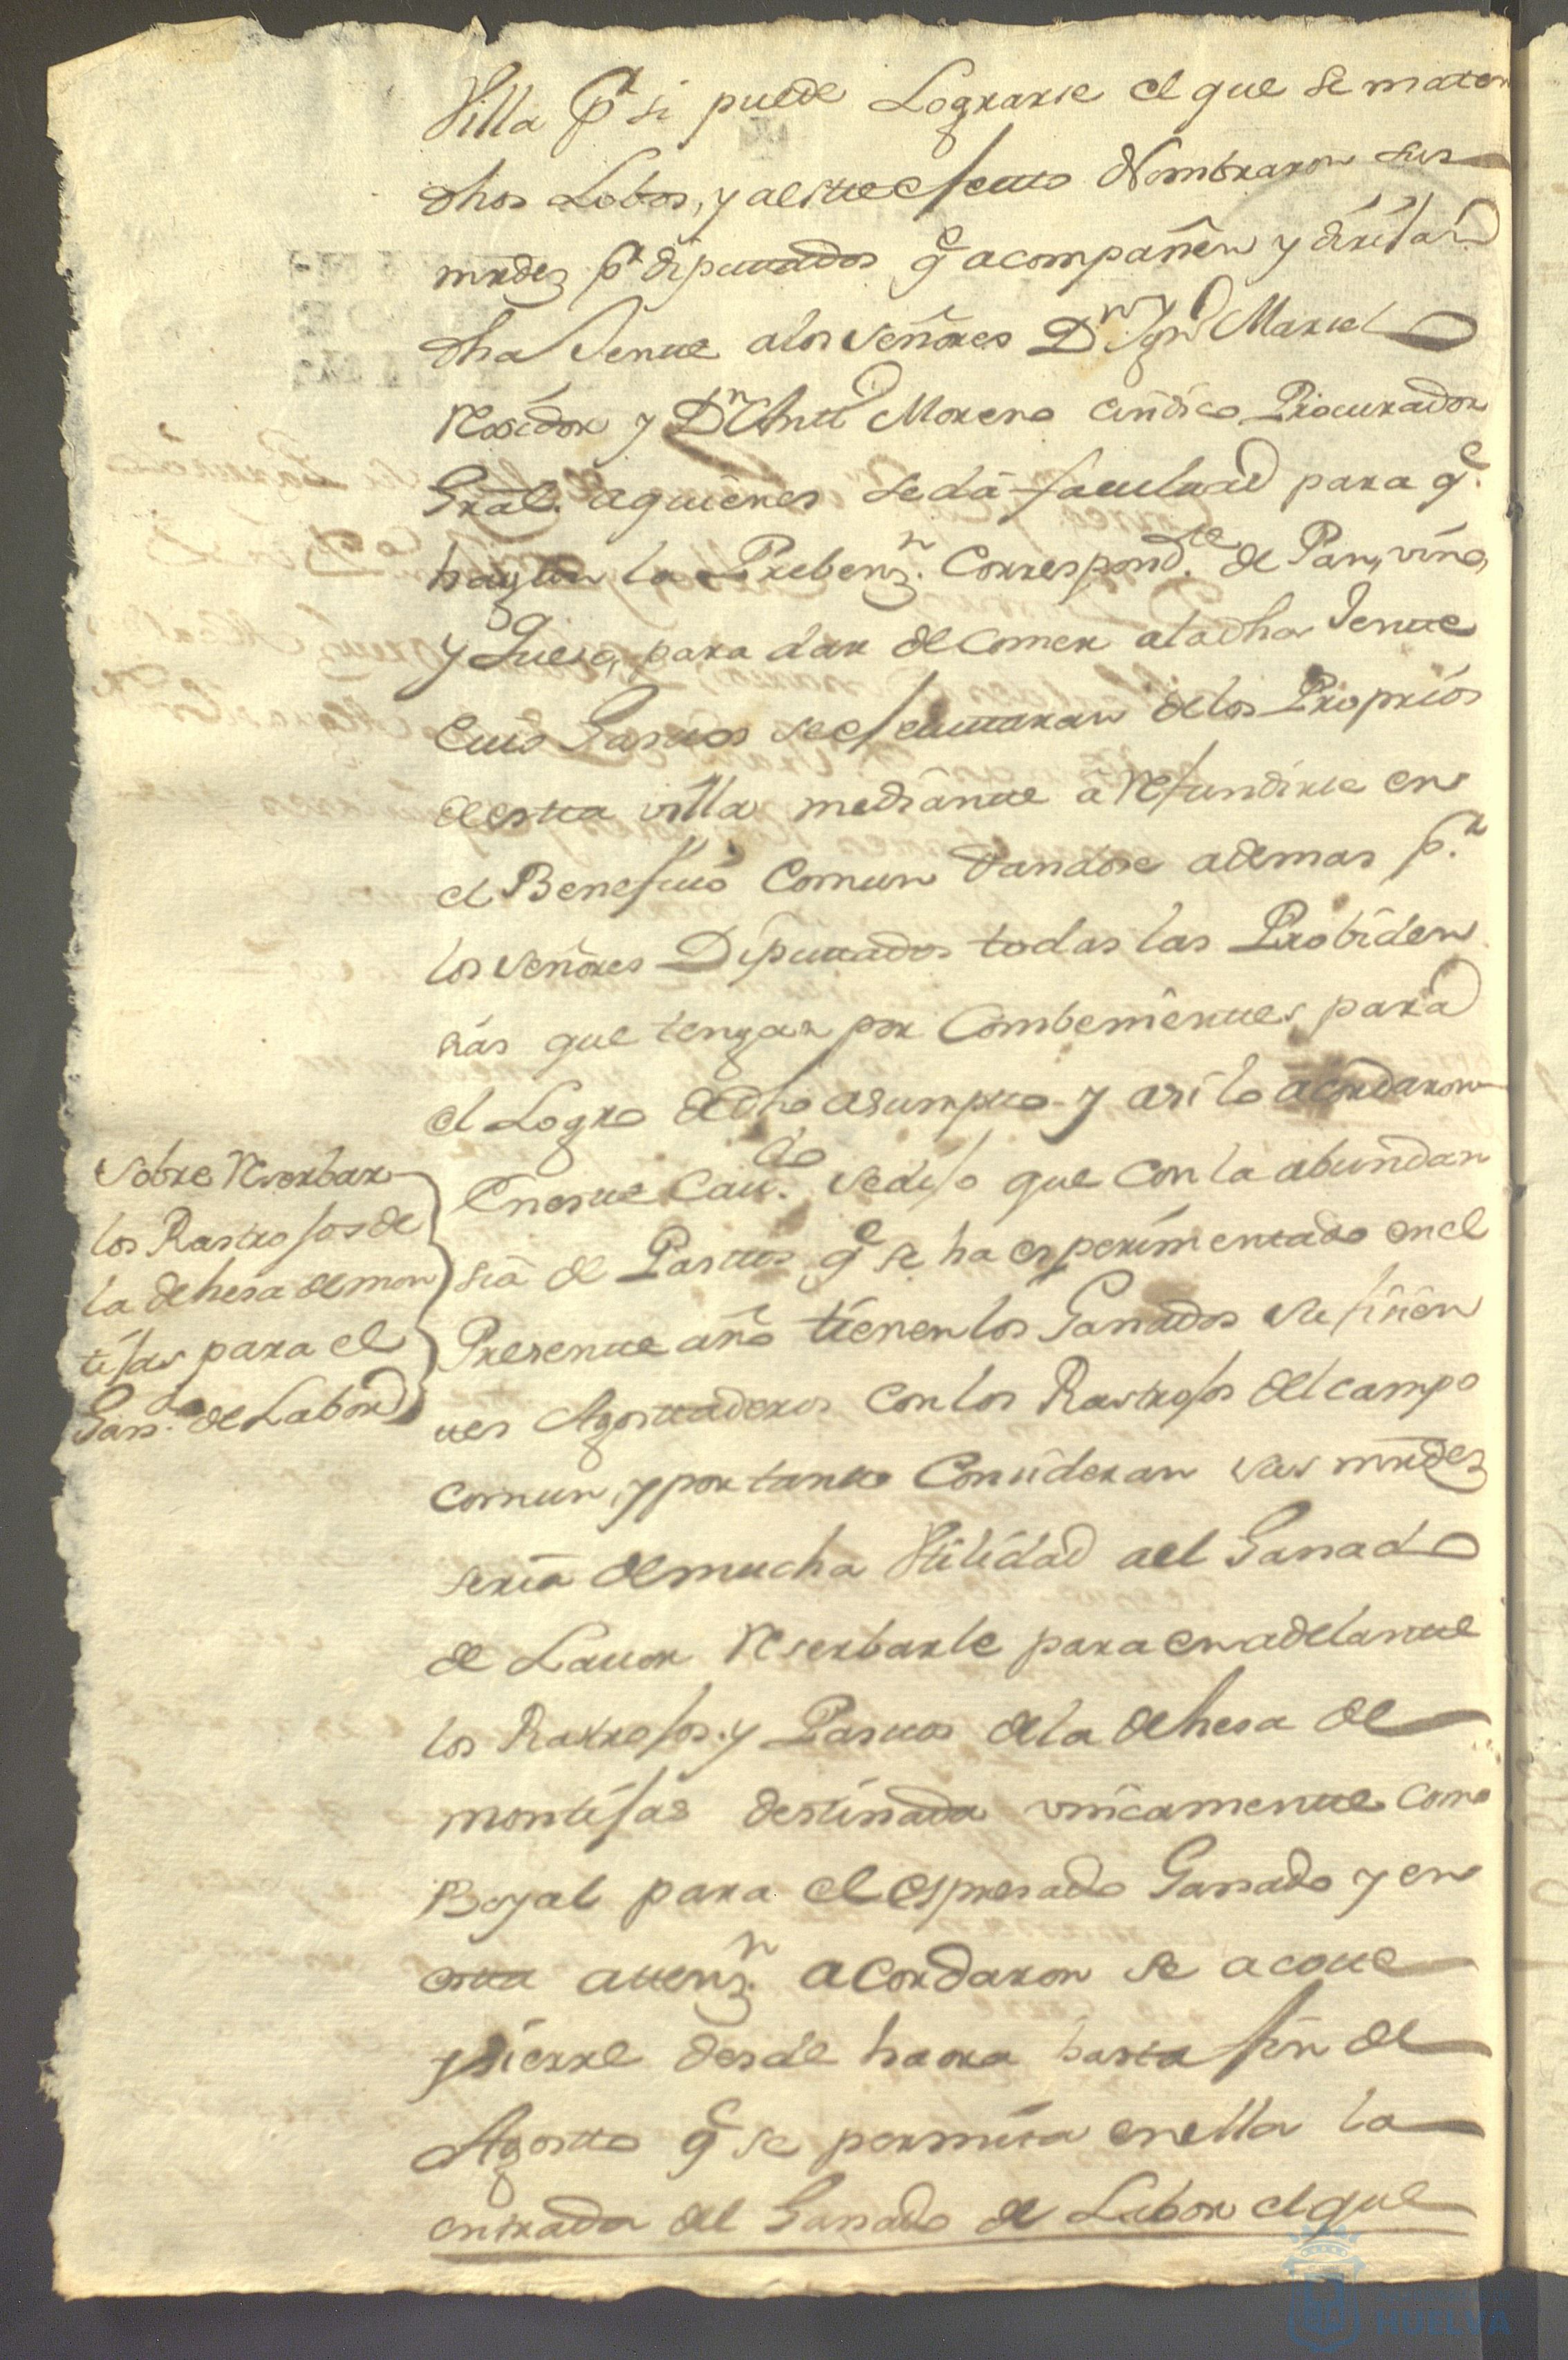 Villa pr si puede Lograrse el que se maten
dhos Lobos, y a este efecto Nombraron sus
mrdez pr diputados qe acompañen y dirijan
dha Jente a los señores Dn Ign.o Mariel
Rexidor y Dn Antt.o Moreno Cindico Procurador
Gral. a quienes se dá facultad para qe.
hagan la Prebenz.n Correspond.te de Pan, vino,
y Queso, para dar de comer a la dha Jente
Cuios Gastos se efectuaran de los Proprios
de esta villa mediante a Refundirse en
el Beneficio Comun dandose ademas p.r
los señores Diputados todas las Probiden
sias que tengan por Combenientes para
el Logro de dho asumpto y asi lo acordaron
Sobre Reserbar
los Rastrojos de
la dehesa de mon
tijas para el
Gan.do de Labor
En este Cav.do se dijo que con la abundan
sia de Pastos qe se ha esperimentado en el
Presente año tienen los Ganados Sufisien
tes Agostaderos con los Rastrojos del campo
comun, y por tanto Consideran sus mrdez
seria de mucha Utilidad a el Ganado
de Lavor Reserbarle para en adelante
los Rastrojos y Pastos de la dehesa de
montijas destinada unicamente como
Boyal para el espresado Ganado y en
esta attenz.n acordaron se acote
y sierre desde haora hasta fin de
Agosto qe se permita en ella la
entrada del Ganado de Labor el que
HUELVA